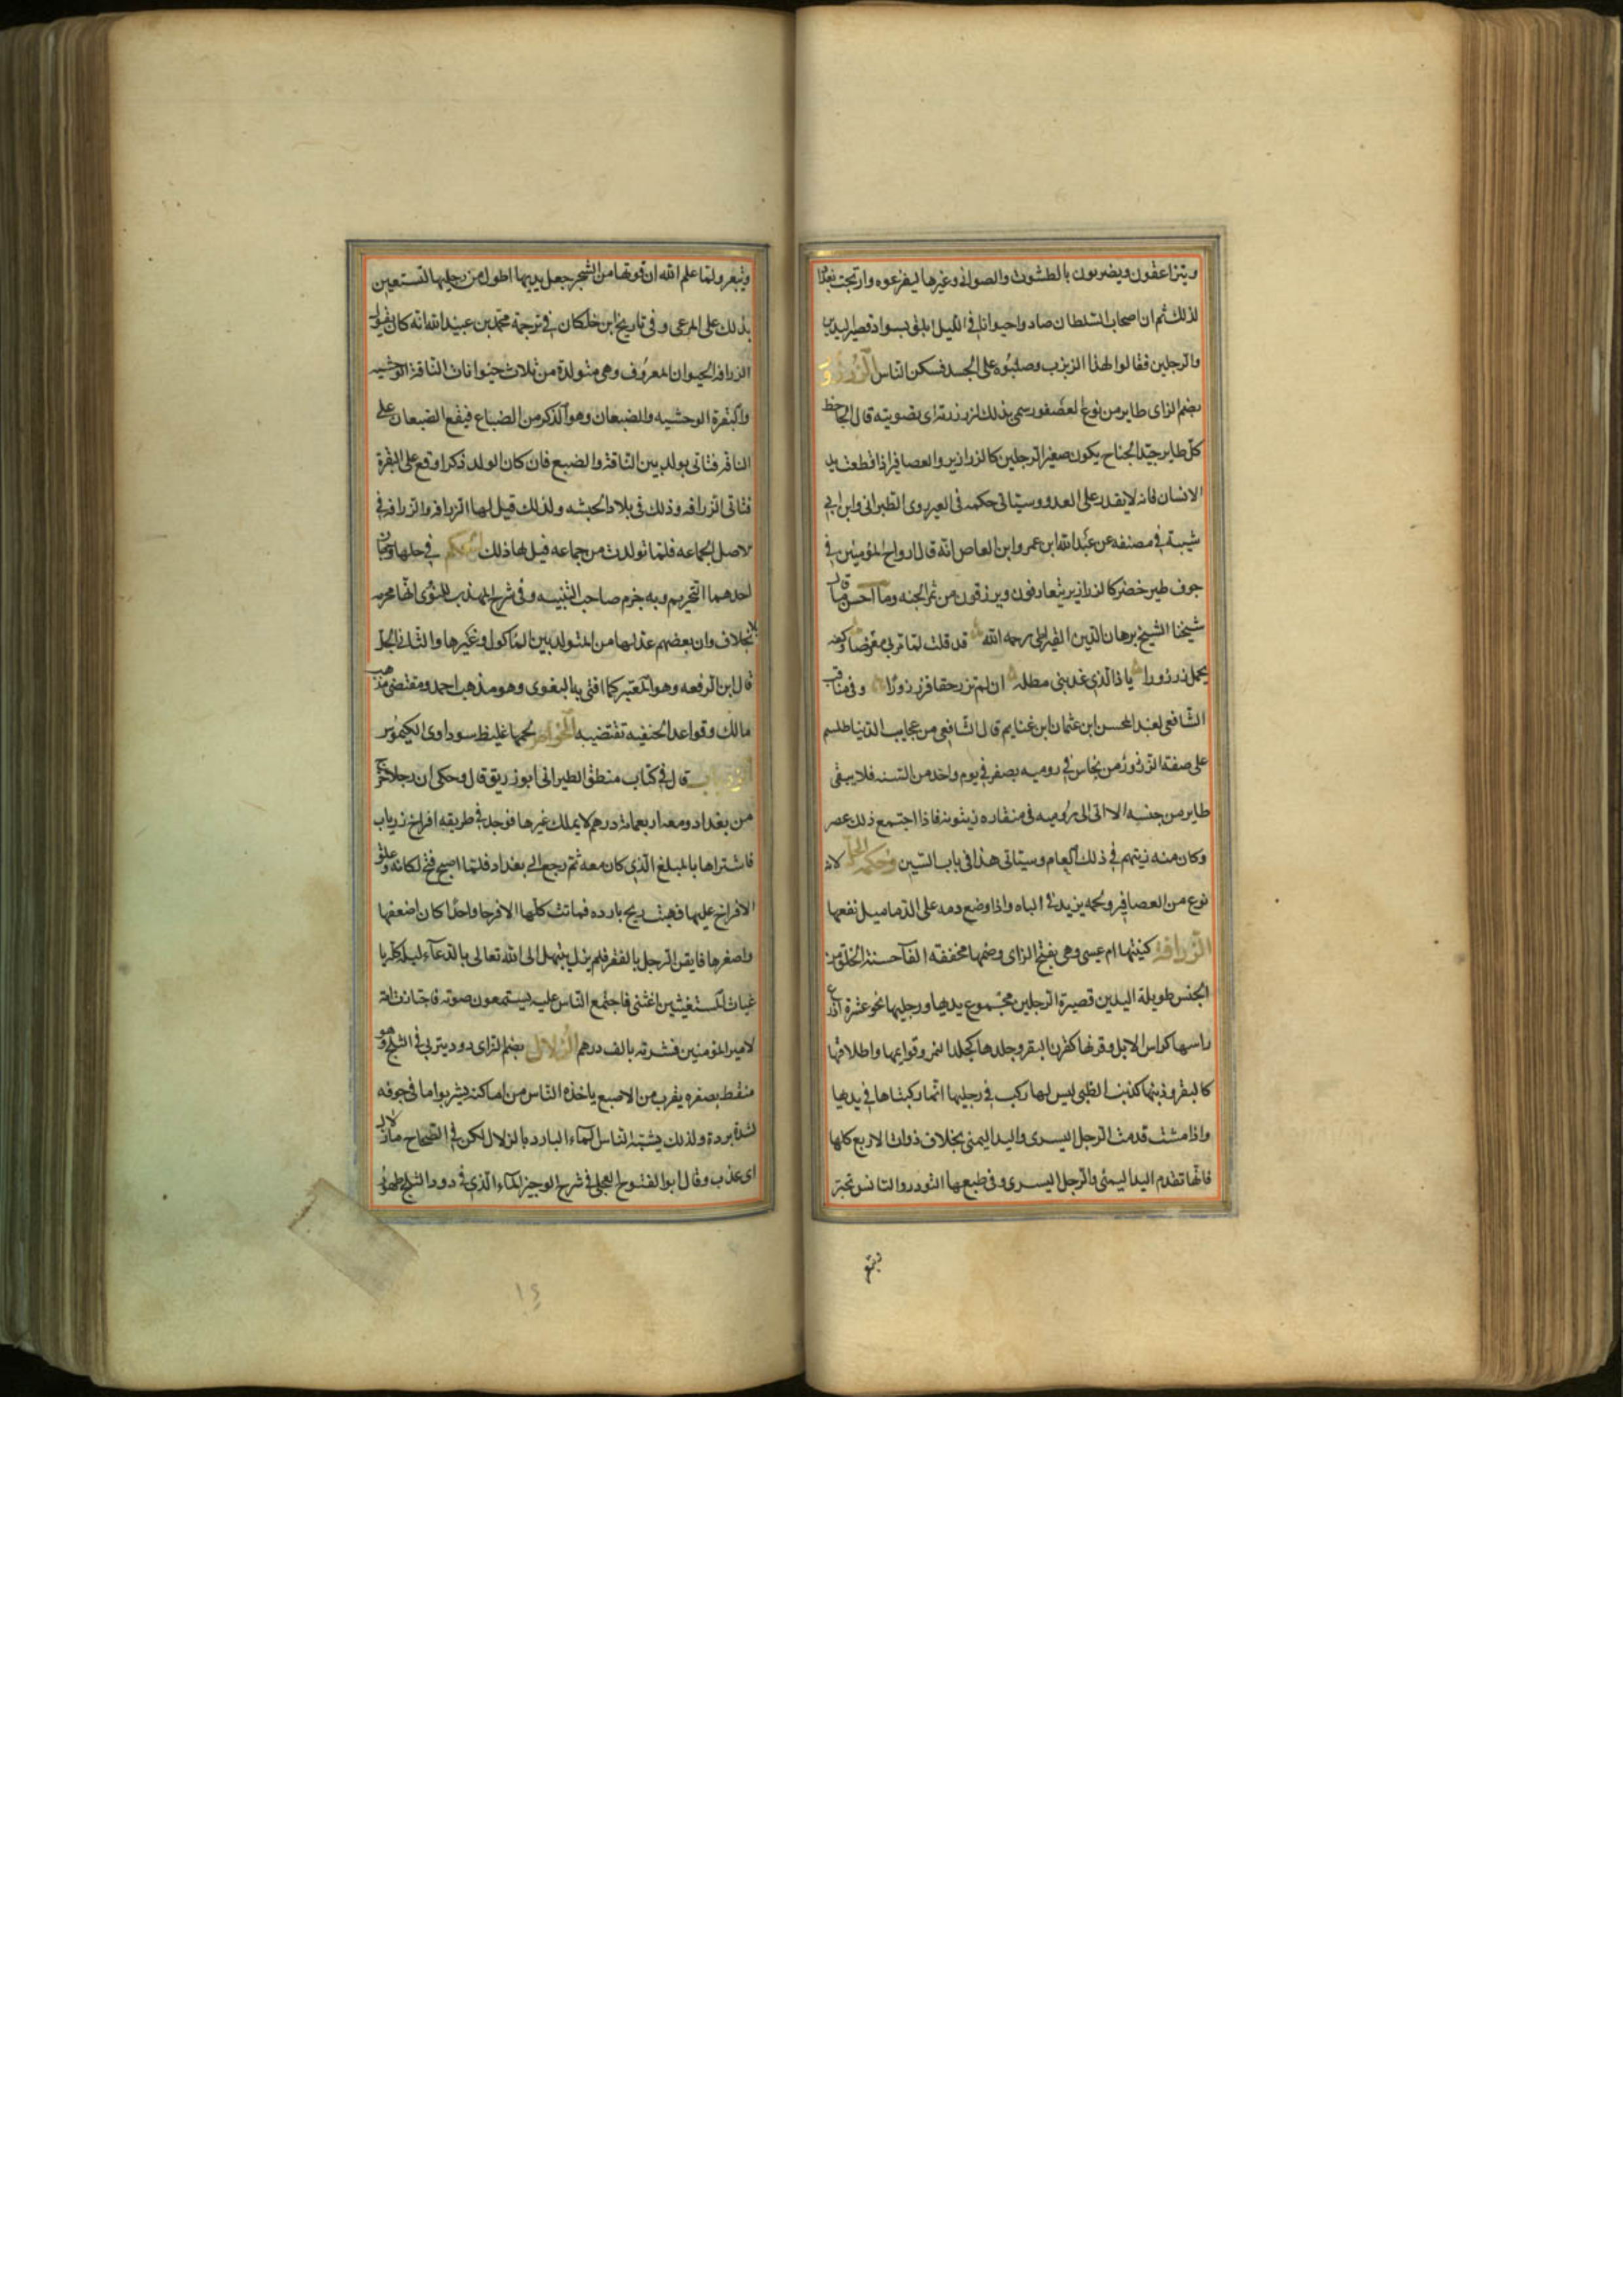 ويتزاعقون ويضربون بالطشوت والصواني وغيرها ليفزعوه وارتجت بغداد
لذلك ثم ان اصحاب السلطان صادوا حيوانا في الليل ابلق بسواد قصير اليدين
والرجلين فقالوا هذا الزبزب وصلبوه على الجسد فسكن الناس الزرزور
بضم الزاى طاير من نوع العصفور سمى بذلك لزرزرته اى تصويته قال الجاحظ
كل طاير جيد الجناح يكون صغير الرجلين كالزرازير والعصافير اذا قطعت يد
الانسان فانه لا يقدر على العدو وسياتى حكمه فى العير روى الطبرانى وابن ابى
شيبة في مصنفه عن عبد الله ابن عمر وابن العاص انه قال ارواح المؤمنين في
جوف طير خضر كالزرازير يتعارفون ويرزقون من ثمر الجنه وما احسن ما قال
شيخنا الشيخ برهان الدين القيراطى رحمه الله قد قلت لما مر بى معرضا وكفه
يحمل زرزورا يا ذا الذي عذبنى مطله ان لم تزر حقا فزر زورا وفى مناقب
الشافعى لعبد المحسن ابن عثمان ابن غنايم قال الشافعى من عجايب الدنيا طلسم
على صفة الزرزور من نحاس في روميه يصفر في يوم واحد من السنه فلا يبقى
طاير من جنسه الا اتى الى روميه فى منقاره زيتونه فاذا اجتمع ذلك عصر
وكان منه زيتهم في ذلك العام وسيتاتى هذا فى باب السين وحكمه الحل لانه
نوع من العصافير ولحمه يزيد في الباه واذا وضع دمه على الدماميل نفعها
الزرافة كنيتها ام عيسى وهى بفتح الزاى وضمها مخففه الفآ حسنة الخلق من
الجنس طويلة اليدين قصيرة الرجلين مجتموع يديها ورجليها نحو عشرة اذرع
راسها كراس الابل وقرنها كقرن البقر وجلدها كجلد النمر وقوايمها واظلافها
كالبقر وذنبها كذنب الظبى ليس لها ركب في رجليها انما ركبتاها في يديها
واذا مشت قدمت الرجل اليسرى واليد اليمنى بخلاف ذوات الاربع كلها
فانها تقدم اليد اليمنى والرجل اليسرى وفى طبعها التودد والتانس وتجتر
وتبعر
وتبعر ولما علم الله ان قوتها من الشجر جعل يديها اطول من رجليها لتستعين
بذلك على المرعى وفى تاريخ ابن خلكان في ترجمة محمد بن عبيد الله انه كان يقول
الزرافه الحيوان المعروف وهى متولدة من ثلاث حيوانات الناقة الوحشيه
والبقرة الوحشيه والضبعان وهو الذكر من الضباع فيقع الضبعان على
الناقه فتاتى بولد بين الناقة والضبع فان كان الولد ذكرا وقع على البقرة
فتاتى الزرافه وذلك فى بلاد الحبشه ولذلك قيل لها الزرافه والزرافه في
الاصل الجماعه فلما تولدت من جماعه قيل لها ذلك الحكم في حلها وجهان
احدهما التحريم وبه جزم صاحب التنبيه وفى شرح المهذب للنووى انها محرمه
بلا خلاف وان بعضهم عدلها من المتولد بين الماكول وغيرها والثانى الحل
قال ابن الرفعه وهو المعتبر كما افتى به البغوى وهو مذهب احمد ومقتضى مذهب
مالك وقواعد الحنفيه تقتضيه الخواص لحمها غليظ سوداوى الكيموس
الزرياب قال في كتاب منطق الطير انه ابو زريق قال وحكى ان رجلا خرج
من بغداد ومعه اربعمائة درهم لا يملك غيرها فوجد في طريقه افراخ زرياب
فاشتراها بالمبلغ الذي كان معه ثم رجع الى بغداد فلما اصبح فتح لكانه وعلق
الافراخ عليها فهبت ريح بارده فماتت كلها الا فرخا واحدا كان اضعفها
واصغرها فايقن الرجل بالفقر فلم يزل يبتهل الى الله تعالى بالدعآء ليله كله يا
غياث المستغيثين اغثنى فاجتمع الناس عليه يستمعون صوته فاجتازت امة
لامير المؤمنين فشرته بالف درهم الزلال بضم الزاى دود يتربى في الثلج وهو
منقط بصفره يقرب من الاصبع ياخذه الناس من اماكنه ليشربوا ما فى جوفه
لشدة برده ولذلك يشبه الناس الماء البارد بالزلال لكن في الصحاح ماء زلال
اى عذب وقال ابو الفتوح العجلى في شرح الوجيز الماء الذي في دود الثلج طهور
١٤